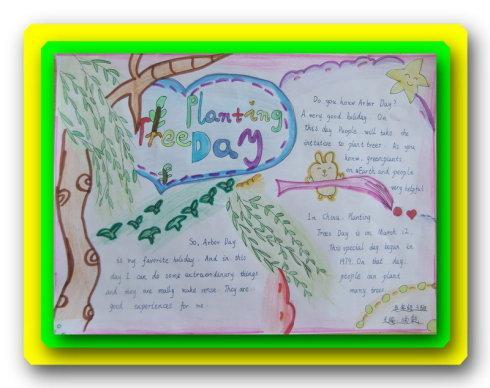 Planting
Tree
Day
Do you know Arbor Day?
A very good holiday. On
this day People will take the
initiative to plant trees. As you
know, green plants
on Earth and people
very helpful
In China. Planting
Trees Day is on March 12.
This special day began in
1979. On that day,
people can plant
many trees.
So, Arbor Day
is my favorite holiday. And in this
day I can do some extraordinary things
and they are really make sense. They are
good experiences for me.